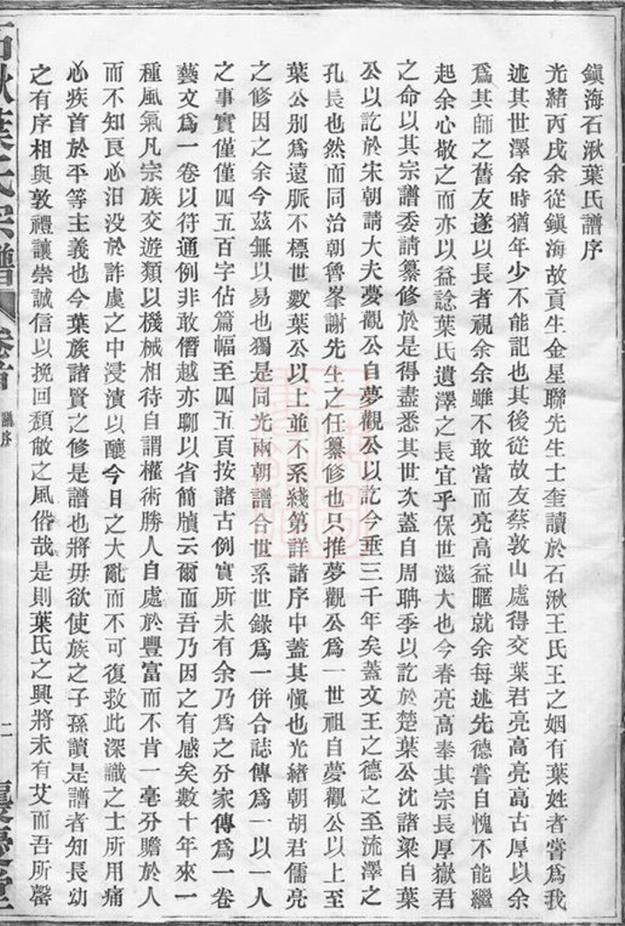 鎮海石湫葉氏譜序
光緒丙戌余從鎮海故貢生金星聯先生士奎讀於石湫王氏王之姻有葉姓者嘗為我
述其世澤余時猶年少不能記也其後從故友蔡敦山處得交葉君亮高亮高古厚以余
為其師之舊友遂以長者視余余雖不敢當而亮高益暱就余每述先德嘗自愧不能繼
起余心敬之而亦以益諗葉氏遺澤之長宜乎保世滋大也今春亮高奉其宗長厚嶽君
之命以其宗譜委請纂修於是得盡悉其世次蓋自周聃季以訖於楚葉公沈諸梁自葉
公以訖於宋朝請大夫夢觀公自夢觀公以訖今垂三千年矣蓋文王之德之至流澤之
孔長也然而同治朝魯峯謝先生之任纂修也只推夢觀公為一世祖自夢觀公以上至
葉公別為遠脈不標世數葉公以上並不系綫第詳諸序中蓋其慎也光緒朝胡君儒亮
之修因之余今茲無以易也獨是同光兩朝譜合世系世錄為一併合誌傳為一以一人
之事實僅僅四五百字佔篇幅至四五頁按諸古例實所未有余乃為之分家傳為一卷
藝文為一卷以符通例非敢僭越亦聊以省簡牘云爾而吾乃因之有感矣數十年來一
種風氣凡宗族交遊類以機械相待自謂權術勝人自處於豐富而不肯一毫分贍於人
而不知良心汨没於詐虞之中浸漬以釀今日之大亂而不可復救此深識之士所用痛
心疾首於平等主義也今葉族諸賢之修是譜也將毋欲使族之子孫讀是譜者知長幼
之有序相與敦禮讓崇誠信以挽回頹敝之風俗哉是則葉氏之興將未有艾而吾所罄
石湫葉氏宗譜
卷首
譜序
二